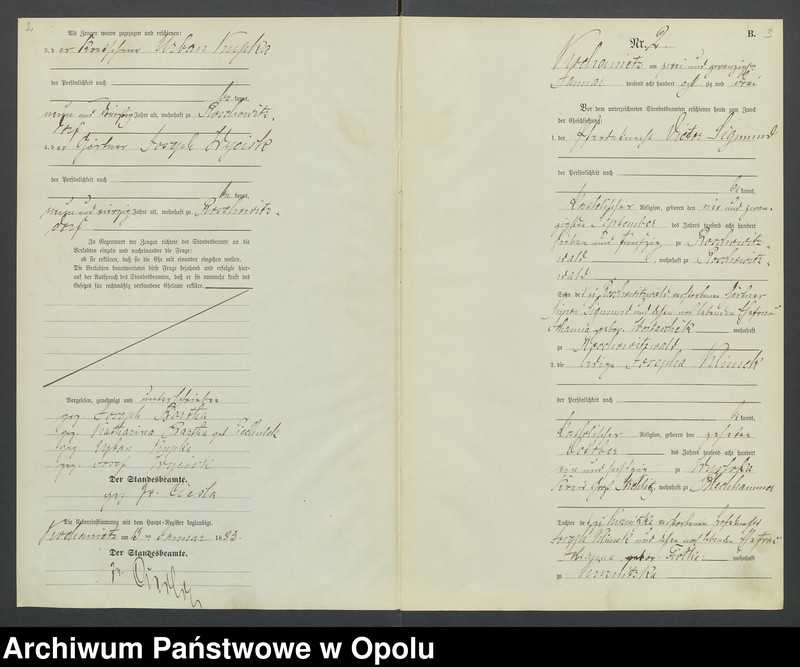 2
Als Zeugen waren zugezogen und erschienen:
3. der Urban Kupka
der Persönlichkeit nach
be kannt,
neun und fünfzig Jahre alt, wohnhaft zu Roschowitz-
dorf
4. der Gärtner Joseph Wycisk
der Persönlichkeit nach
be kannt,
neun und vierzig Jahre alt, wohnhaft zu Roschowitz-
dorf
In Gegenwart der Zeugen richtete der Standesbeamte an die
Verlobten einzeln und nacheinander die Frage:
ob sie erklären, daß sie die Ehe mit einander eingehen wollen.
Die Verlobten beantworteten diese Frage bejahend und erfolgte hier-
auf der Ausspruch des Standesbeamten, daß er sie nunmehr kraft des
Gesetzes für rechtmäßig verbundene Eheleute erkläre.
Vorgelesen, genehmigt und unterschrieben
gez. Joseph Bartha
gez. Katharina Bartha geb.
gez. Urban Kupka
gez. Josef Wycisk
Der Standesbeamte.
gez. Fr. Ciesla
Die Uebereinstimmung mit dem Haupt-Register beglaubigt.
am 13 ten Januar 1883.
Der Standesbeamte.
Fr.
B.
3
Nr. 2.
am zwei und zwanzigsten
Januar tausend acht hundert acht zig und drei
Vor dem unterzeichneten Standesbeamten erschienen heute zum Zweck
der Eheschließung:
1. der Pferdeknecht Victor Sigmund
der Persönlichkeit nach
be kannt,
katholischer Religion, geboren den vier und zwan-
zigsten September des Jahres tausend acht hundert
sieben und fünfzig zu Roschowitz-
wald, wohnhaft zu Roschowitz-
wald
Sohn des zu Roschowitzwald verstorbenen Gärtner
Sigmund und dessen noch lebenden Ehefrau
Johanna gebor. wohnhaft
zu Roschowitzwald
2. die ledige Josepha Klimek
der Persönlichkeit nach
be kannt,
katholischer Religion, geboren den zehnten
October des Jahres tausend acht hundert
ein und sechszig zu Wyssoka
Kreis Groß Strehlitz, wohnhaft zu Blechhammer
Tochter des zu verstorbenen
Joseph Klimek und dessen noch lebenden Ehefrau
gebor. wohnhaft
zu
Archiwum Państwowe w Opolu